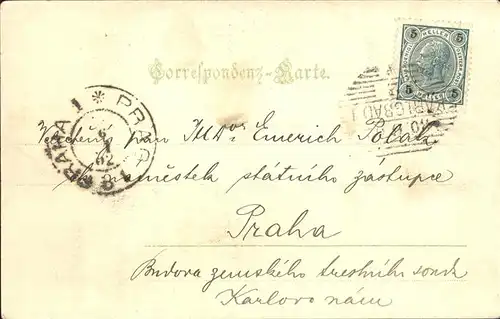 5 HELLER 5
Correspondenz-Karte.
5 5
KARLSBAD 1
PRAG 1 * PRAHA 1
6
02
Vážený pan JUDr Emerich Polák,
náměstek státního zástupce
Praha
Budova zemského trestního soudu
Karlovo nám.